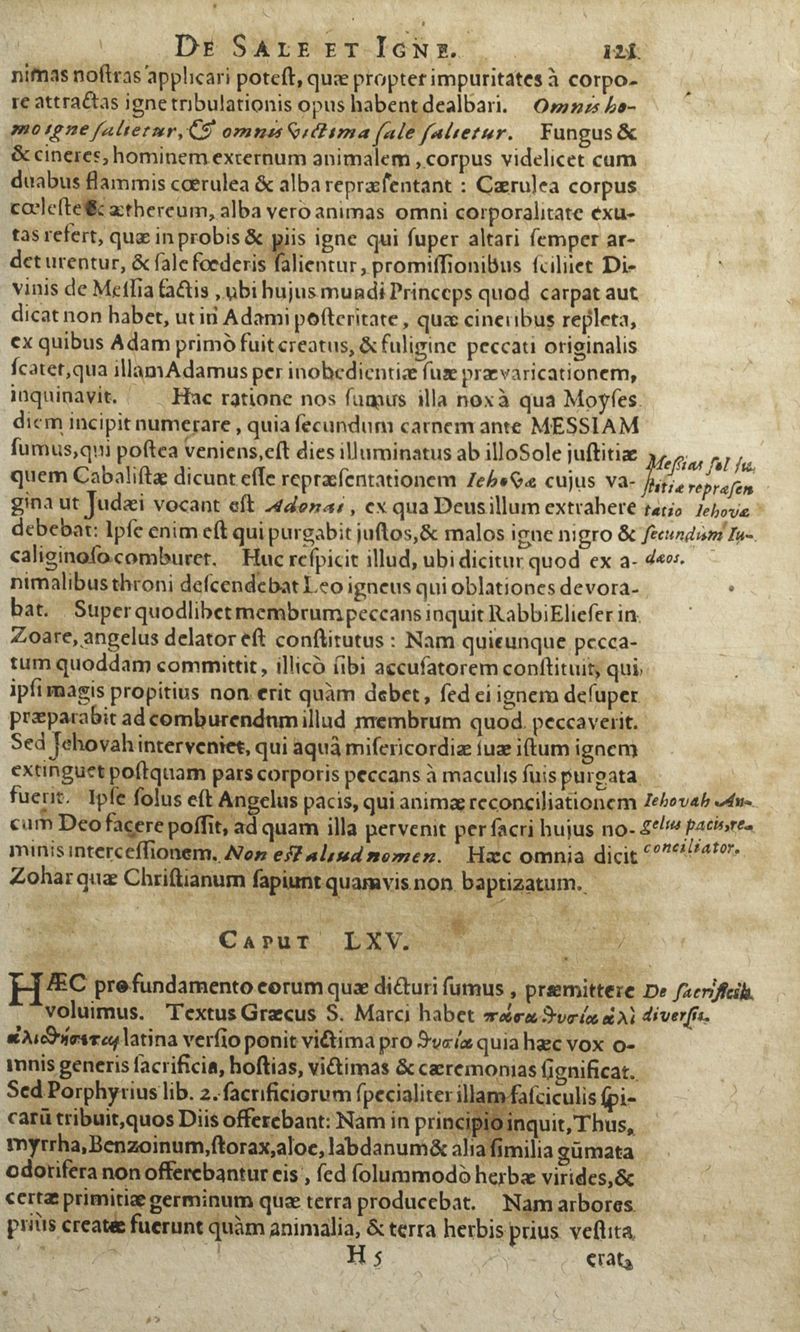 DE SALE ET IGNE. 121
nimas noſtras applicari poteſt, quæ propter impuritates à corpo-
re attractas igne tribulationis opus habent dealbari. Omnis ho-
mo igne ſalietur, & omnis victima ſale ſalietur. Fungus &
& cineres, hominem externum animalem, corpus videlicet cum
duabus flammis cœrulea & alba repræſentant : Cærulea corpus
cœleſte & æthereum, alba vero animas omni corporalitate exu-
tas refert, quæ in probis & piis igne qui ſuper altari ſemper ar-
det urentur, & ſale fœderis ſalientur, promiſſionibus ſciliiet Di-
vinis de Meſſia factis, ubi hujus mundi Princeps quod carpat aut
dicat non habet, ut in Adami poſteritate, quæ cineribus repleta,
ex quibus Adam primò fuit creatus, & fuligine peccati originalis
ſcatet, qua illam Adamus per inobedientiæ ſuæ prævaricationem,
inquinavit. Hac ratione nos ſumus illa noxà qua Moyſes
diem incipit numerare, quia ſecundum carnem ante MESSIAM
fumus, qui poſtea veniens, eſt dies illuminatus ab illo Sole juſtitiæ
quem Cabaliſtæ dicunt eſſe repræſentationem Iehova cujus va-
gina ut Judæi vocant eſt Adonai, ex qua Deus illum extrahere
debebat: Ipſe enim eſt qui purgabit juſtos, & malos igne nigro &
caliginoſo comburet. Huc reſpicit illud, ubi dicitur quod ex a-
nimalibus throni deſcendebat Leo igneus qui oblationes devora-
bat. Super quodlibet membrum peccans inquit Rabbi Elieſer in
Zoare, angelus delator eſt conſtitutus : Nam quicunque pecca-
tum quoddam committit, illicò ſibi accuſatorem conſtituit, qui
ipſi magis propitius non erit quàm debet, ſed ei ignem deſuper
præparabit ad comburendnm illud membrum quod peccaverit.
Sed Jehovah interveniet, qui aquâ miſericordiæ ſuæ iſtum ignem
extinguet poſtquam pars corporis peccans à maculis ſuis purgata
fuerit. Ipſe ſolus eſt Angelus pacis, qui animæ reconciliationem
cum Deo facere poſſit, ad quam illa pervenit per ſacri hujus no-
minis interceſſionem. Non eſt aliud nomen. Hæc omnia dicit
Zohar quæ Chriſtianum ſapiunt quamvis non baptizatum.
Meſsias ſol ju-
ſtitiæ repræſen
tatio Iehovæ
ſecundùm Iu-
dæos.
Iehovah An-
gelus pacis, re-
conciliator.
CAPUT LXV.
HÆC pro fundamento eorum quæ dicturi ſumus, præmittere
voluimus. Textus Græcus S. Marci habet πάσα θυσία ἁλὶ
ἁλισθήσεται latina verſio ponit victima pro θυσία quia hæc vox o-
mnis generis ſacrificia, hoſtias, victimas & cæremonias ſignificat.
Sed Porphyrius lib. 2. ſacrificiorum ſpecialiter illam faſciculis ſpi-
carū tribuit, quos Diis offerebant: Nam in principio inquit, Thus,
myrrha, Benzoinum, ſtorax, aloe, labdanum & alia ſimilia gūmata
odorifera non offerebantur eis, ſed ſolummodò herbæ virides, &
certæ primitiæ germinum quæ terra producebat. Nam arbores
priùs creatæ fuerunt quàm animalia, & terra herbis prius veſtita
De ſacrificiis
diverſis.
H 5 erat,